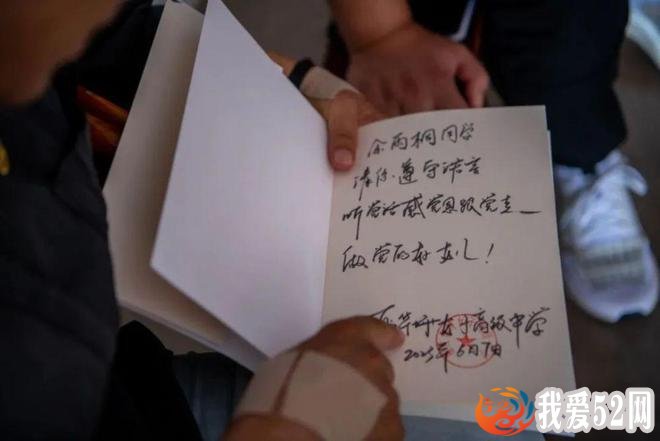 余雨桐同学
请你遵守诺言
听党话感党恩跟党走
做党的好女儿！
高级中学
2025年6月7日
我爱52网